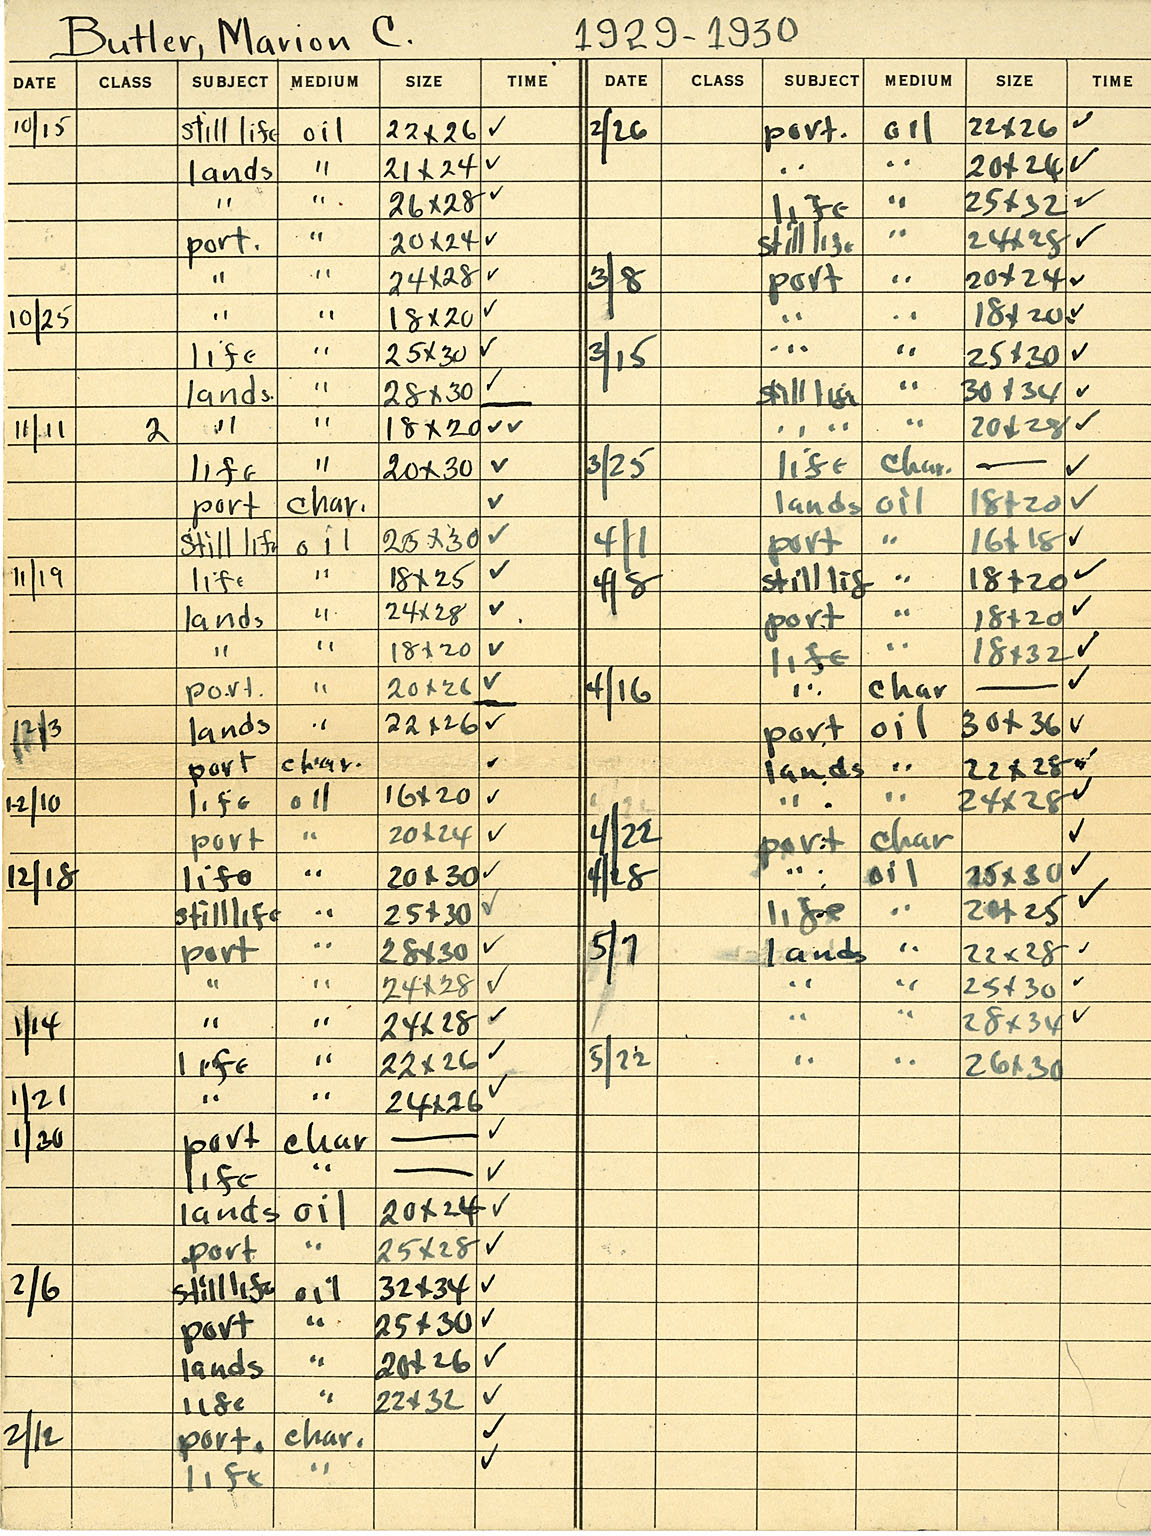 Butler, Marion C. 1929-1930
DATE CLASS SUBJECT MEDIUM SIZE TIME
10/15 still life oil 22x26 ✓
lands " 21x24 ✓
" " 26x28 ✓
port. " 20x24 ✓
" " 24x28 ✓
10/25 " " 18x20 ✓
life " 25x30 ✓
lands. " 28x30 ✓
11/11 2 " " 18x20 ✓✓
life " 20x30 ✓
port char. ✓
still life oil 25x30 ✓
11/19 life " 18x25 ✓
lands " 24x28 ✓
" " 18x20 ✓
port. " 20x26 ✓
12/3 lands " 22x26 ✓
port char. ✓
12/10 life oil 16x20 ✓
port " 20x24 ✓
12/18 life " 20x30 ✓
still life " 25x30 ✓
port " 28x30 ✓
" " 24x28 ✓
1/14 " " 24x28 ✓
life " 22x26 ✓
1/21 " " 24x26 ✓
1/30 port char — ✓
life " — ✓
lands oil 20x24 ✓
port " 25x28 ✓
2/6 still life oil 32x34 ✓
port " 25x30 ✓
lands " 20x26 ✓
life " 22x32 ✓
2/12 port. char. ✓
life " ✓
DATE CLASS SUBJECT MEDIUM SIZE TIME
2/26 port. oil 22x26 ✓
" " 20x24 ✓
life " 25x32 ✓
still life " 24x28 ✓
3/8 port " 20x24 ✓
" " 18x20 ✓
3/15 " " 25x30 ✓
still life " 30x34 ✓
" " " 20x28 ✓
3/25 life char. — ✓
lands oil 18x20 ✓
4/1 port " 16x18 ✓
4/8 still lif " 18x20 ✓
port " 18x20 ✓
life " 18x32 ✓
4/16 " char — ✓
port oil 30x36 ✓
lands " 22x28 ✓
" " 24x28 ✓
4/22 port char ✓
4/28 " oil 25x30 ✓
life " 20x25 ✓
5/7 lands " 22x28 ✓
" " 25x30 ✓
" " 28x34 ✓
5/22 " " 26x30